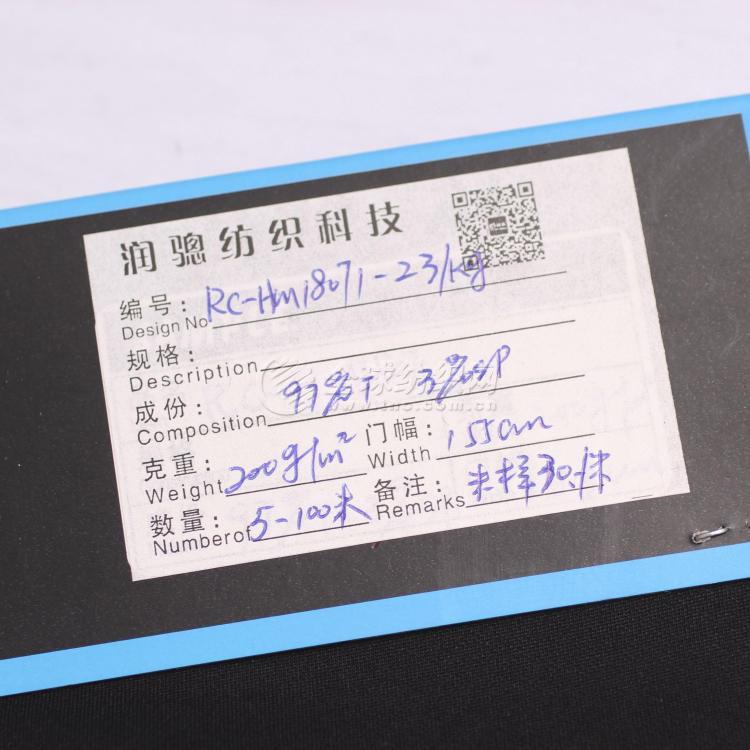 润骢纺织科技
编号: RC-HM18071-23/kg
Design No
规格:
Description
成份: 97%T 3%SP
Composition
全球纺织网
www.tnc.com.cn
克重: 200g/m² 门幅: 155cm
Weight Width
数量: 5-100米 备注: 米样30/米
Numberof Remarks